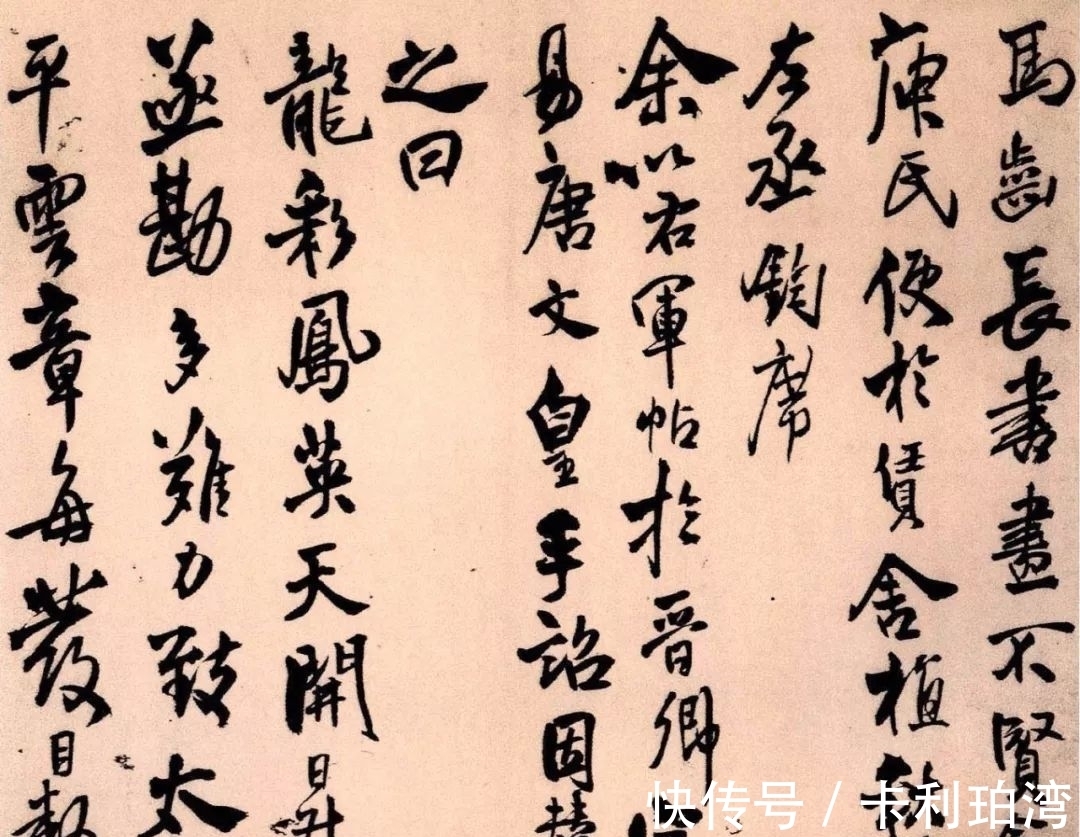 馬齒長書畫不賢
庾氏便於賃舍植
左丞鈞席
余以右軍帖於晉卿
易唐文皇手詔因
之曰
龍彩鳳英天開日升
亟勘多難力致太
平雲章每發目
快传号 / 卡利珀湾